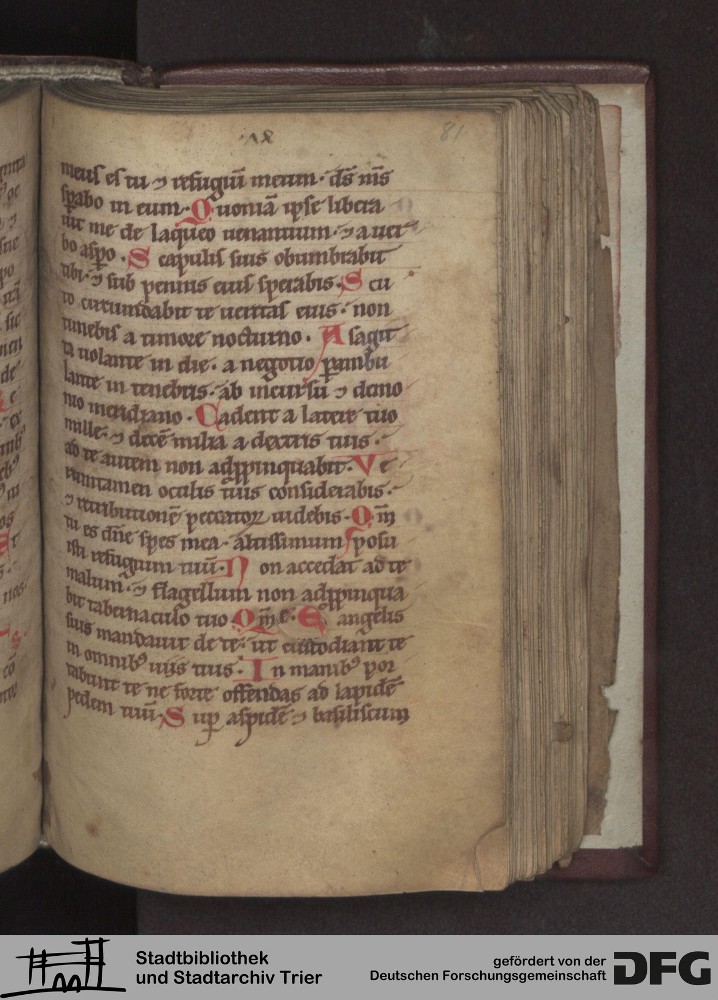 81
meus es tu ⁊ refugiū meum · ds̄ ms̄
sꝑabo in eum · Quoniā ipse libera
uit me de laqueo uenantium · ⁊ a uer
bo aspo · Scapulis suis obumbrabit
tibi · ⁊ sub pennis eius sperabis · Scu
to circumdabit te ueritas eius · non
timebis a timore nocturno · A sagit
ta uolante in die · a negotio ꝑambu
lante in tenebris · ab incursu ⁊ demo
nio meridiano · Cadent a latere tuo
mille · ⁊ decē milia a dextris tuis ·
ad te autem non adp̄pinquabit · Ve
rumtamen oculis tuis considerabis ·
⁊ retributionē peccatoꝝ uidebis · Qm̄
tu es dn̄e spes mea · altissimum posu
isti refugium tuū · Non accedat ad te
malum · ⁊ flagellum non adp̄pinqua
bit tabernaculo tuo Qm̄ angelis
suis mandauit de te · ut custodiant te
in omnibꝰ uiis tuis · In manibꝰ por
tabunt te ne forte offendas ad lapidē
pedem tuū · Suꝑ aspidē ⁊ basiliscum
Stadtbibliothek
und Stadtarchiv Trier
gefördert von der
Deutschen Forschungsgemeinschaft
DFG